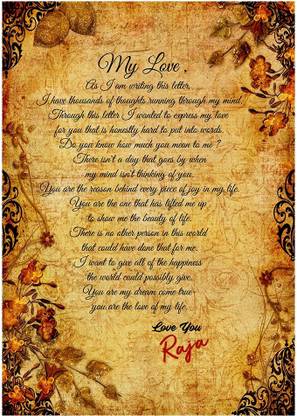 My Love,
As I am writing this letter,
I have thousands of thoughts running through my mind,
Through this letter I wanted to express my love
for you that is honestly hard to put into words.
Do you know how much you mean to me ?
There isn't a day that goes by when
my mind isn't thinking of you.
You are the reason behind every piece of joy in my life.
You are the one that has lifted me up
to show me the beauty of life.
There is no other person in this world
that could have done that for me.
I want to give all of the happiness
the world could possibly give.
You are my dream come true-
you are the love of my life.
Love You
Raja